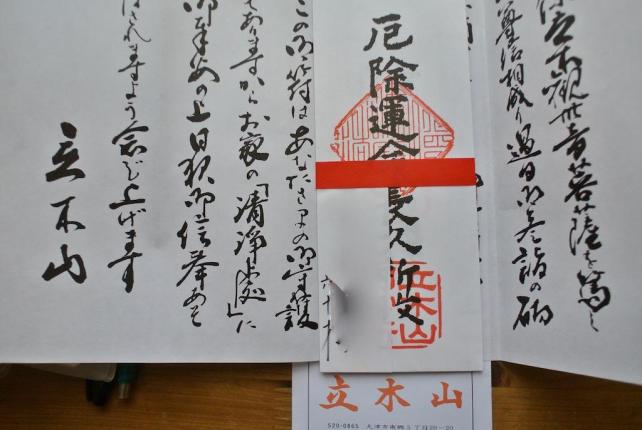 立木観世音菩薩を篤と
尊信相成り過日御参詣の砌
厄除運命長久祈
立木山
この御符はあなたさまの御守護
でありますからお家の「清浄處」に
御奉安の上日夜御信奉あそ
ばされますよう念じ上げます
立木山
立木山
520-0865 大津市南郷5丁目28-20